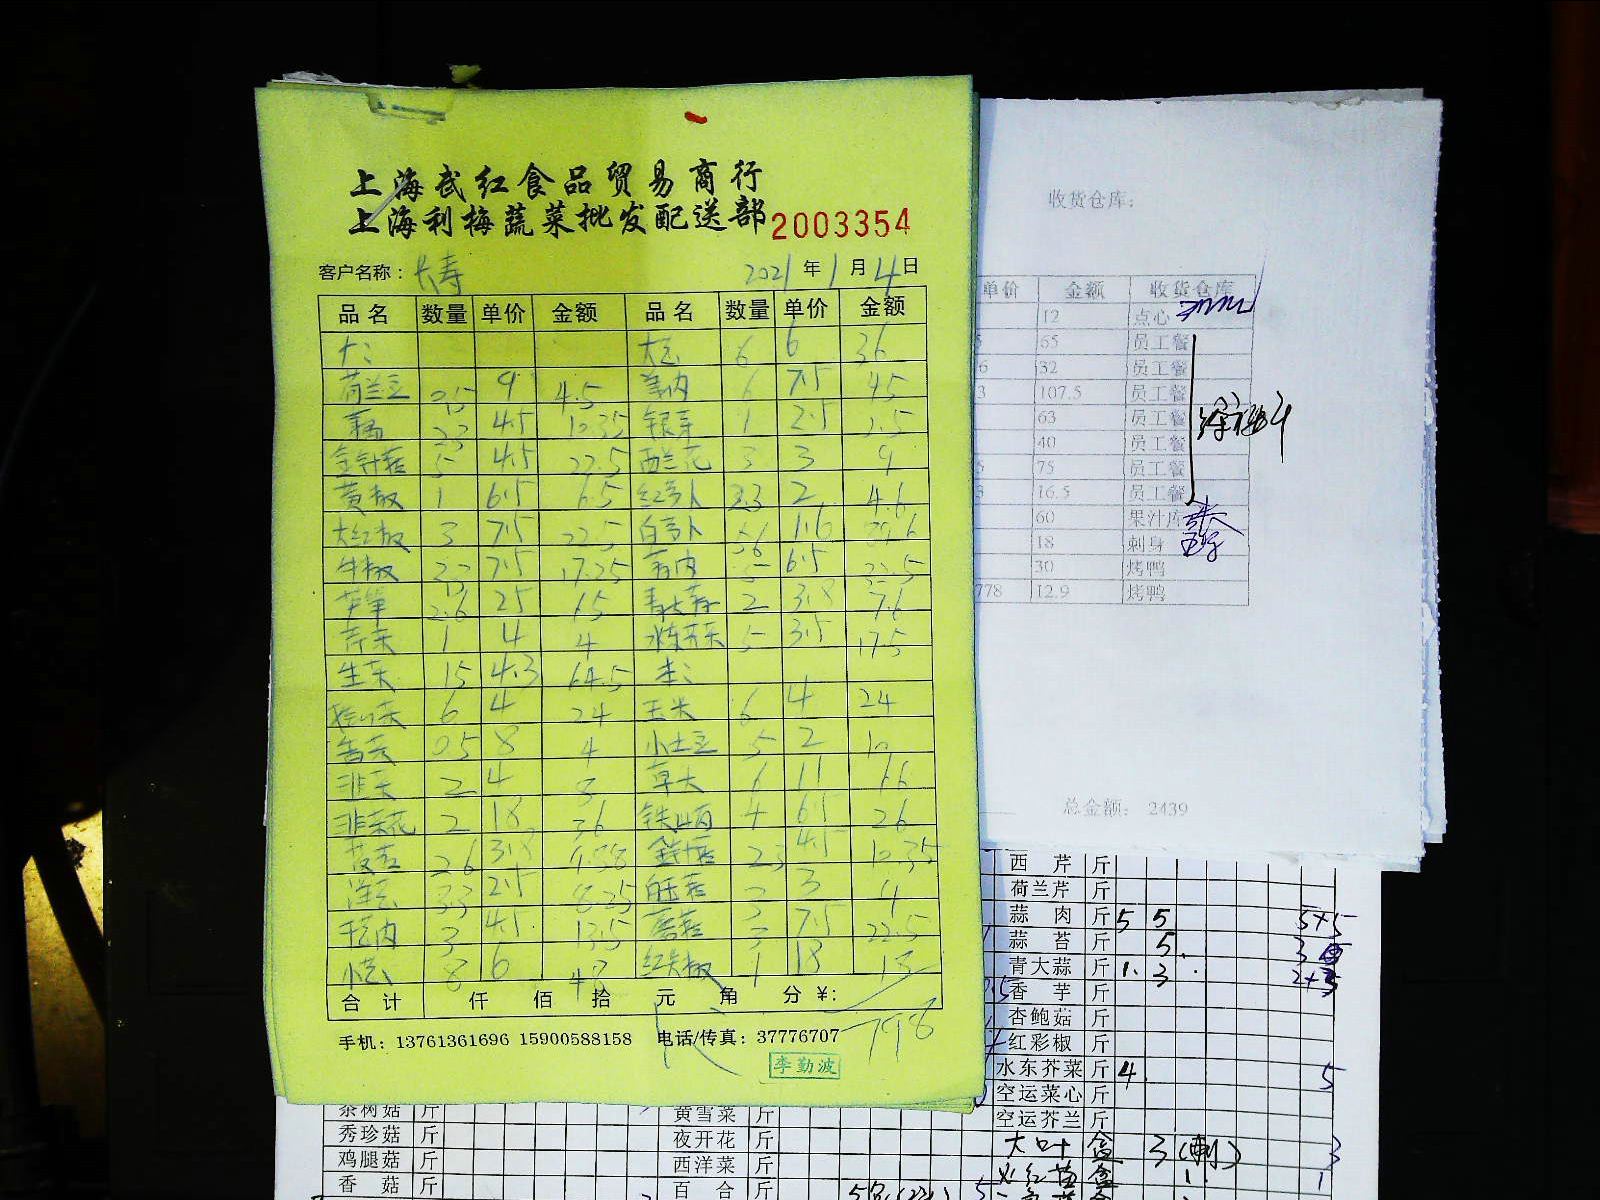 上海武红食品贸易商行
上海利梅蔬菜批发配送部 2003354
客户名称： 长寿 2021 年 1 月 4 日
品名 数量 单价 金额 品名 数量 单价 金额
大葱 6 6 36
荷兰豆 0.5 9 4.5 姜肉 6 7.5 45
藕 2.3 4.5 10.35 银芽 1 2.5 2.5
金针菇 5 4.5 22.5 西兰花 3 3 9
黄椒 1 6.5 6.5 红萝卜 2.3 2 4.6
大红椒 3 7.5 22.5 白萝卜 1.6
牛椒 2.3 7.5 17.25 蒜肉 5 6.5 32.5
芦笋 2.6 25 65 青大蒜 2 3.8 7.6
芹菜 1 4 4 水东芥菜 5 3.5 17.5
生菜 15 4.3 64.5
6 4 24 玉米 6 4 24
香菜 0.5 8 4 小土豆 5 2 10
韭菜 2 4 8 草头 6 11 66
韭菜花 2 18 36 铁山药 4 6.5 26
2.6 3.8 9.88 金针菇 2.3 4.5 10.35
洋葱 3.3 2.5 8.25 白玉菇 3
3 4.5 13.5 蘑菇 3 7.5 22.5
小葱 8 6 48 红尖椒 1 18 18
合计 仟 佰 拾 元 角 分 ¥: 798
手机：13761361696 15900588158 电话/传真：37776707
李勤波
收货仓库：
单价 金额 收货仓库
12 点心
65 员工餐
32 员工餐
107.5 员工餐
63 员工餐
40 员工餐
75 员工餐
16.5 员工餐
60 果汁库
18 刺身
30 烤鸭
778 12.9 烤鸭
总金额： 2439
西芹 斤
荷兰芹 斤
蒜肉 斤 5 5 5+5
蒜苔 斤 5 3
青大蒜 斤 1. 3 2+3
香芋 斤
杏鲍菇 斤
红彩椒 斤
水东芥菜 斤 4 5
空运菜心 斤
空运芥兰 斤
茶树菇 斤 黄雪菜 斤 大叶 盒 3 3
秀珍菇 斤 夜开花 斤
鸡腿菇 斤 西洋菜 斤 火红苗 盒 1 1
香菇 斤 百合 斤